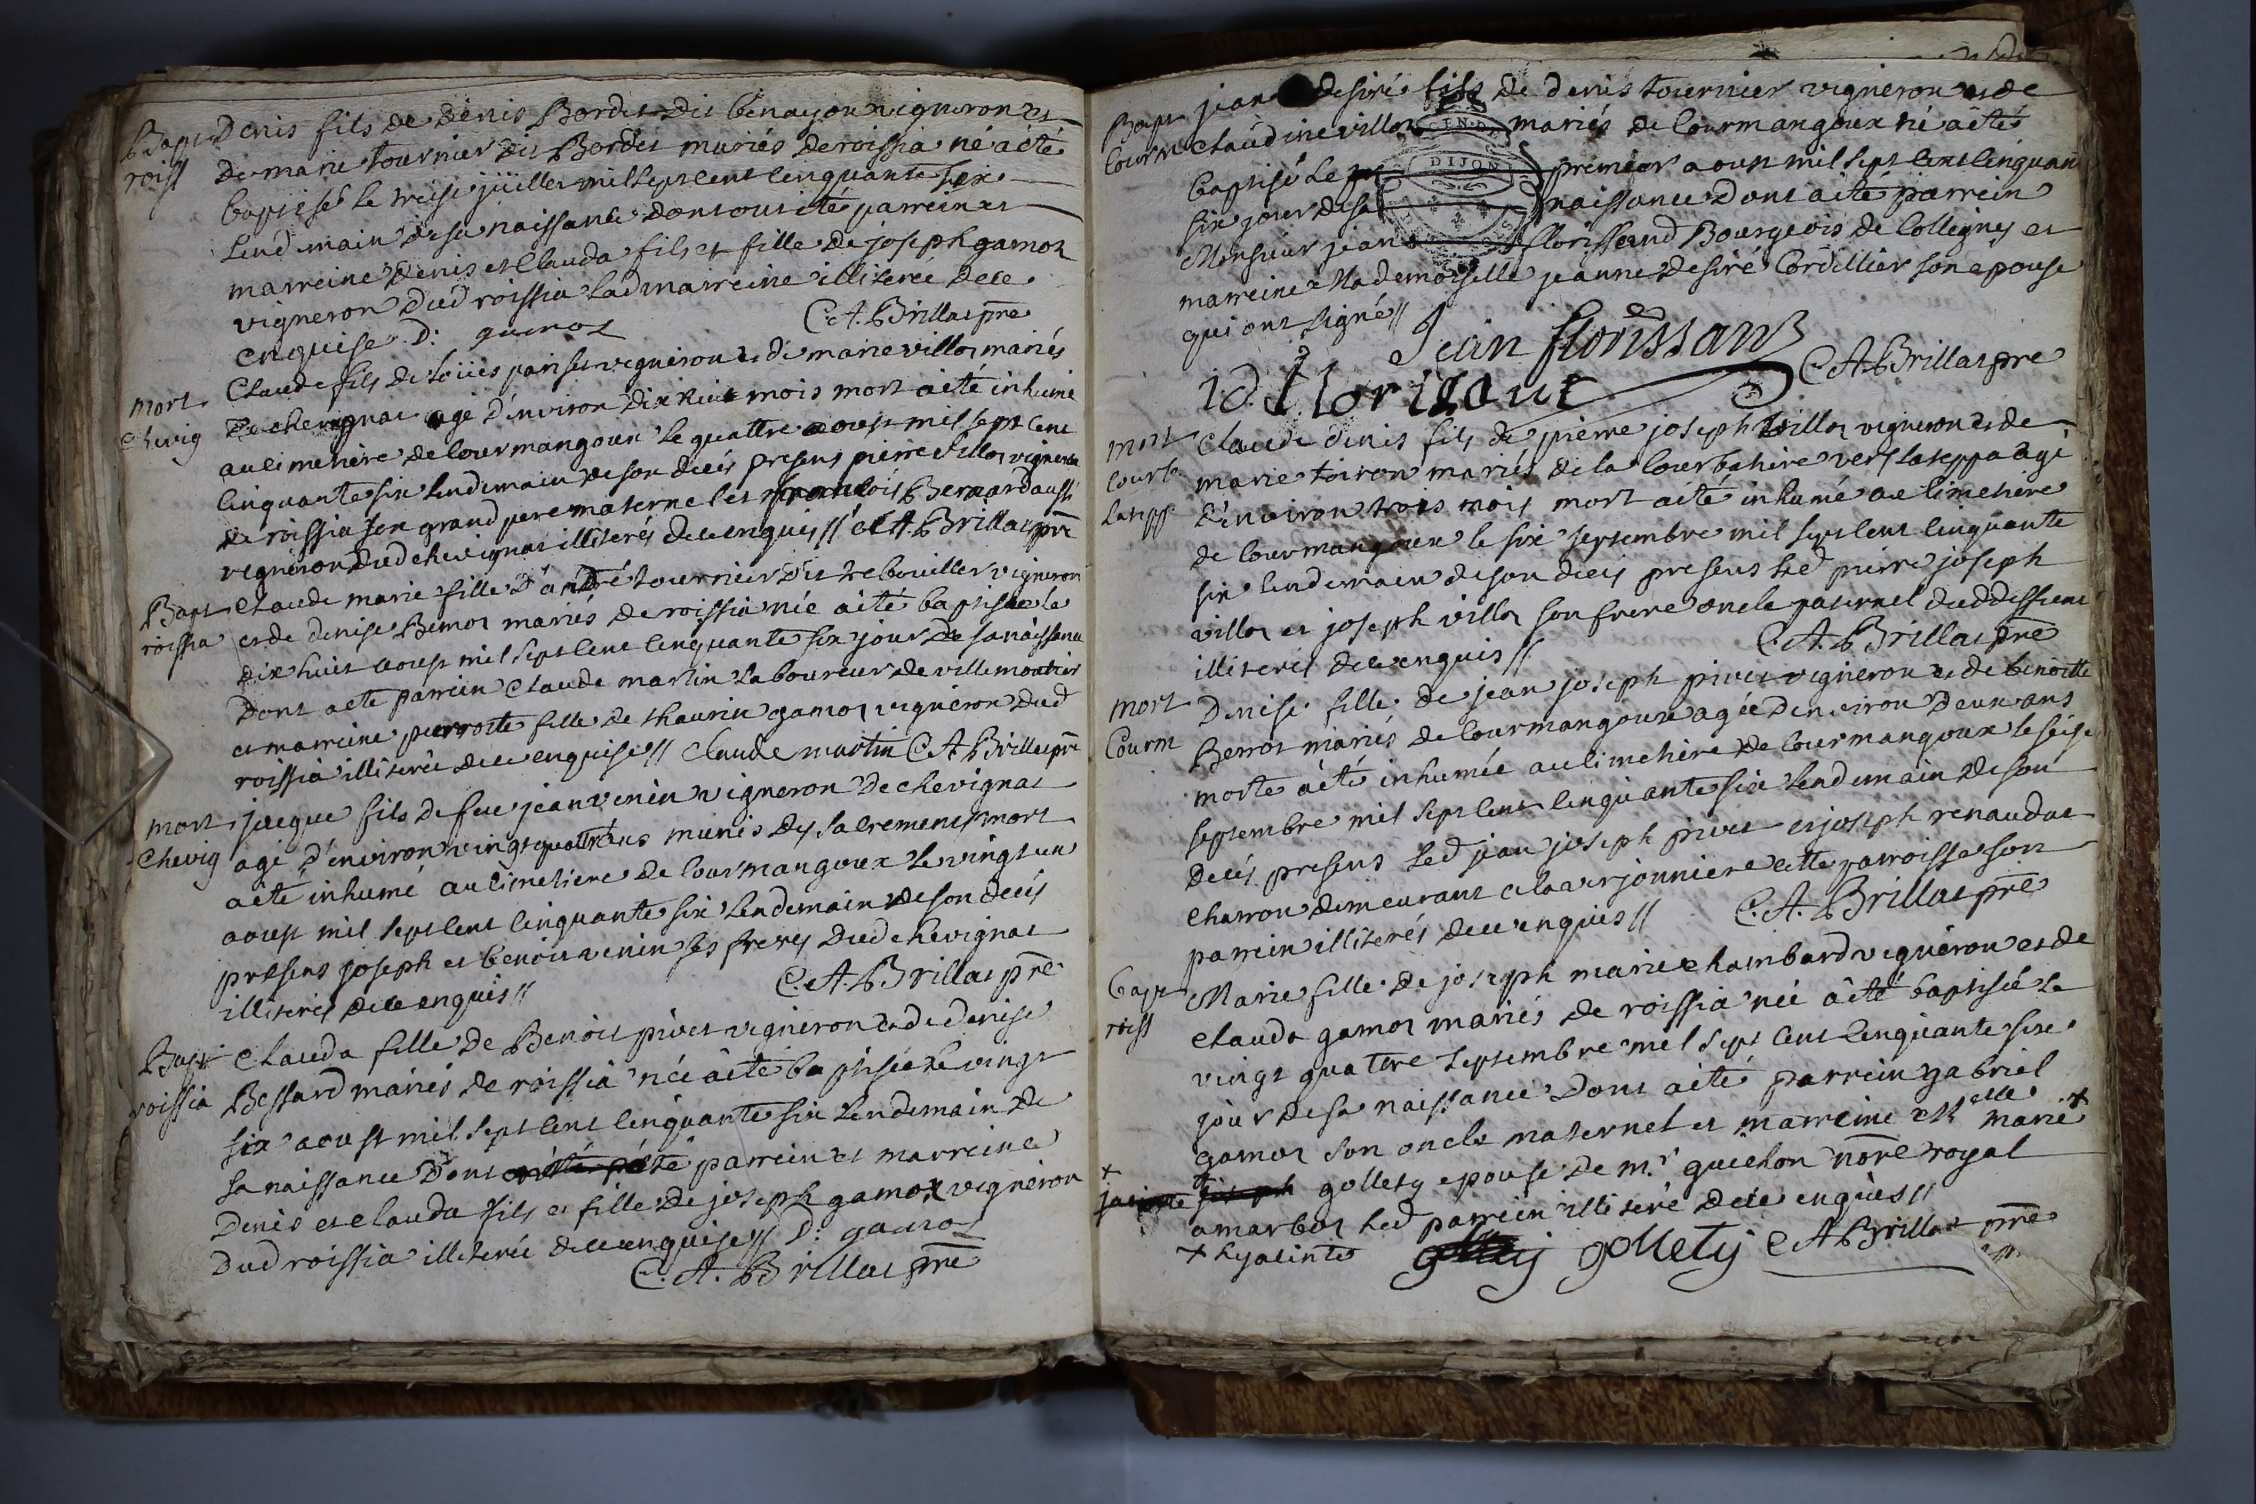 Bapt Denis fils de denis Bordet dit benayon vigneron et
roiss de marie tournier dit Bordet mariés de roissia né a été
baptisé le treise juillet mil sept cent cinquante six
lendemain de sa naissance dont ont été parrein et
marreine denis et Clauda fils et fille de joseph gamot
vigneron dud roissia lad marreine illiterée de ce
enquise D: gamot C. A. Brillat pre
mort Claude fils de loüis pariset vigneron et de marie villot mariés
Chevig de chevignat agé d'environ dix huit mois mort a été inhumé
au cimetiere de Courmangoux le quattre aoust mil sept cent
cinquante six lendemain de son decés presens pierre villot vigneron
de roissia son grand pere maternel et francois Bernard aussi
vigneron dud chevignat illiterés de ce enquis // C A. Brillat pre
Bapt Claude marie fille d'andré tournier dit trebouillet vigneron
roissia et de denise Bemot mariés de roissia née a été baptisée le
dix huit aoust mil sept cent cinquante six jour de sa naissance
dont a ete parrein Claude martin laboureur de villemoutier
et marreine pierrotte fille de thaurin gamot vigneron dud
roissia illiterée de ce enquise // Claude martin C A Brillat pre
mort jacque fils de feu jean venin vigneron de chevignat
Chevig agé d'environ vingt quattre ans munis des sacremens mort
a été inhumé au cimetiere de Courmangoux le vingt un
aoust mil sept cent cinquante six lendemain de son decés
presens joseph et benoit venin ses freres dud chevignat
illiterés de ce enquis // C. A. Brillat pre
Bapt Clauda fille de Benoit pivet vigneron et de denise
roissia Bessard mariés de roissia née a été baptisée le vingt
six aoust mil sept cent cinquante six lendemain de
sa naissance dont parrein et marreine
Denis et Clauda fils et fille de joseph gamot vigneron
dud roissia illiterée de ce enquise // D: gamot
C. A. Brillat pre
Bapt jean desiré fils de denis tournier vigneron et de
Courm Claudine villot mariés de Courmangoux né a été
baptisé le premier aoust mil sept cent cinquante
six jour de sa naissance dont a été parrein
Monsieur jean florissand Bourgeois de Collegny et
marreine Mademoiselle jeanne desiré Cordellier son epouse
qui ont signé // Jean florissant
C A Brillat pre
mort Claude denis fils de pierre joseph villot vigneron et de
Courb marie toiron mariés de la Courbatiere vers lateppa agé
lateppa d'environ trois mois mort a été inhumé au cimetiere
de Courmangoux le six septembre mil sept cent cinquante
six lendemain de son decés presens led pierre joseph
villot et joseph villot son frere oncle paternel dud deffunt
illiterés de ce enquis // C. A. Brillat pre
mort Denise fille de jean joseph pivet vigneron et de benoitte
Courm Berrot mariés de Courmangoux agée d'environ deux ans
morte a été inhumée au cimetiere de Courmangoux le seise
septembre mil sept cent cinquante six lendemain de son
decés presens led jean joseph pivet et joseph renaudat
charron demeurant a la arjonniere cette parroisse son
parrein illiterés de ce enquis // C. A. Brillat pre
bapt Marie fille de joseph marie chambard vigneron et de
roiss Clauda gamot mariés de roissia née a été baptisée le
vingt quattre septembre mil sept cent cinquante six
jour de sa naissance dont a été parrein gabriel
gamot son oncle maternel et marreine Melle marie +
+ gollety epouse de mr. guichon nore royal
a marboz led parrein illiteré de ce enquis //
+ hyacinte golletÿ C A Brillat pre
CEN. DE
DIJON